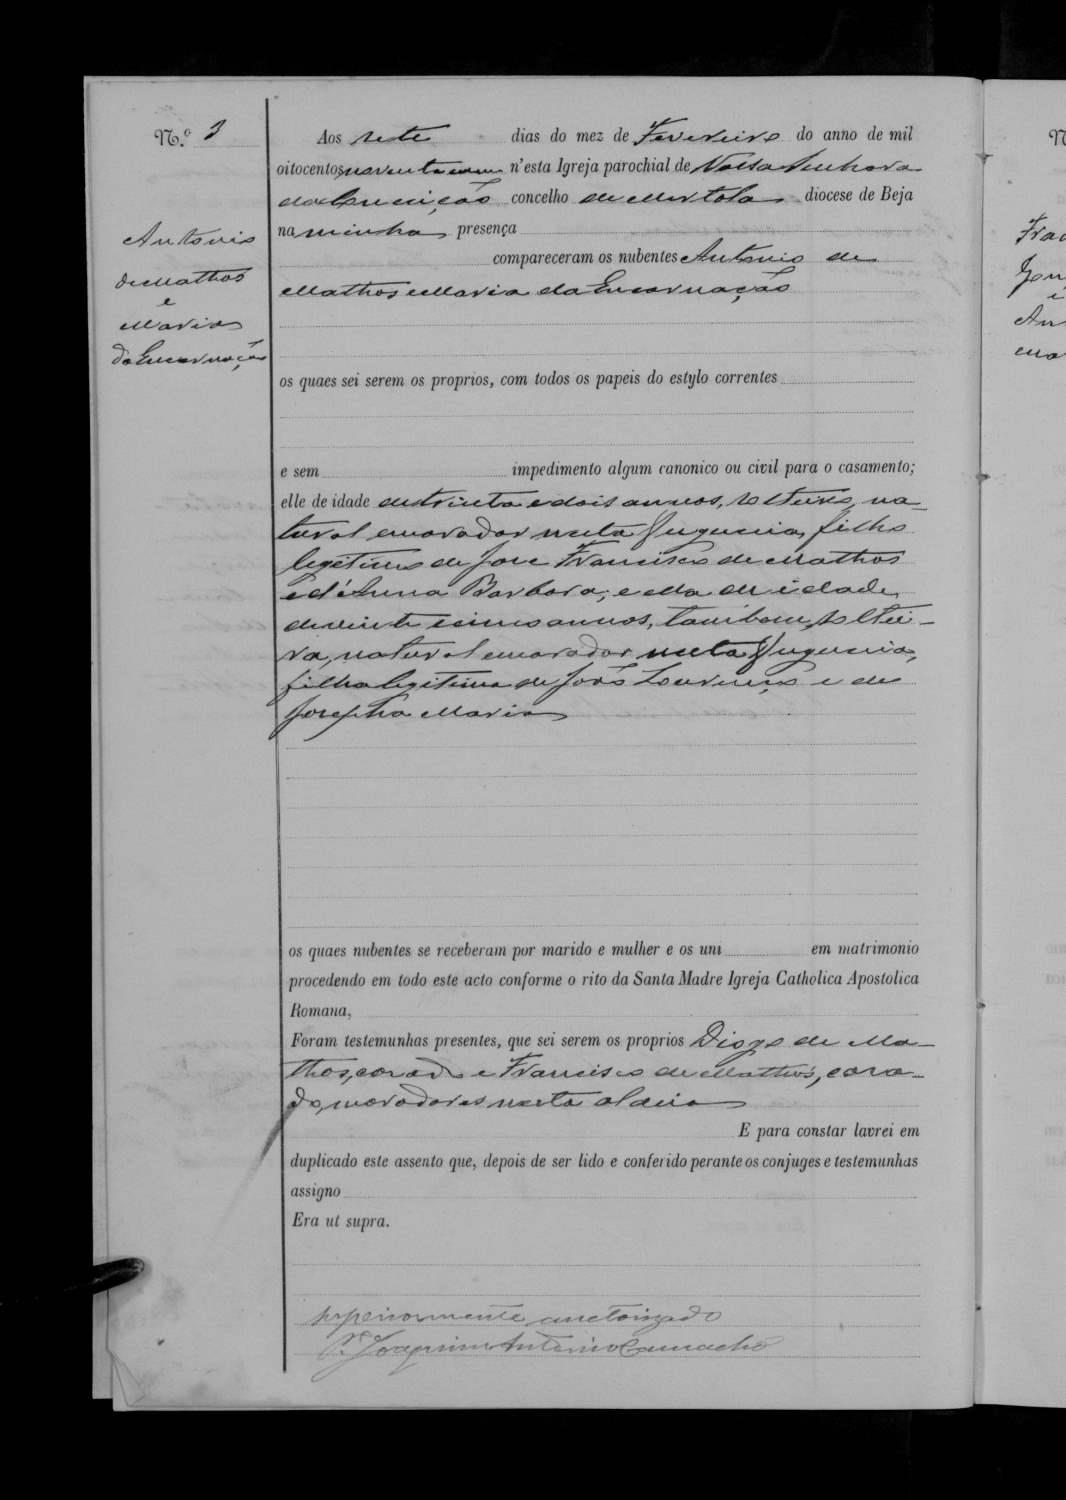 N.º 3
Antonio
de Mathos
e
Maria
da Encarnação
Aos sete dias do mez de Fevereiro do anno de mil
oitocentos noventa e um n'esta Igreja parochial de Nossa Senhora
da Conceição concelho de Mertola diocese de Beja
na minha presença
compareceram os nubentes Antonio de
Mathos e Maria da Encarnação
os quaes sei serem os proprios, com todos os papeis do estylo correntes
e sem impedimento algum canonico ou civil para o casamento;
elle de idade de trinta e dois annos, solteiro, na-
tural e morador nesta freguesia, filho
legitimo de José Francisco de Mathos
e d'Anna Barbara; e ella de idade
de vinte e cinco annos, tambem, soltei-
ra, natural e morador nesta freguesia,
filha legitima de João Lourenço e de
Josepha Maria
os quaes nubentes se receberam por marido e mulher e os uni em matrimonio
procedendo em todo este acto conforme o rito da Santa Madre Igreja Catholica Apostolica
Romana,
Foram testemunhas presentes, que sei serem os proprios Diogo de Ma-
thos, casado e Francisco de Mathos, casa-
do, moradores nesta aldeia
E para constar lavrei em
duplicado este assento que, depois de ser lido e conferido perante os conjuges e testemunhas
assigno
Era ut supra.
superiormente auctorizado
P.e Joaquim Antonio Camacho
Fra
e
An